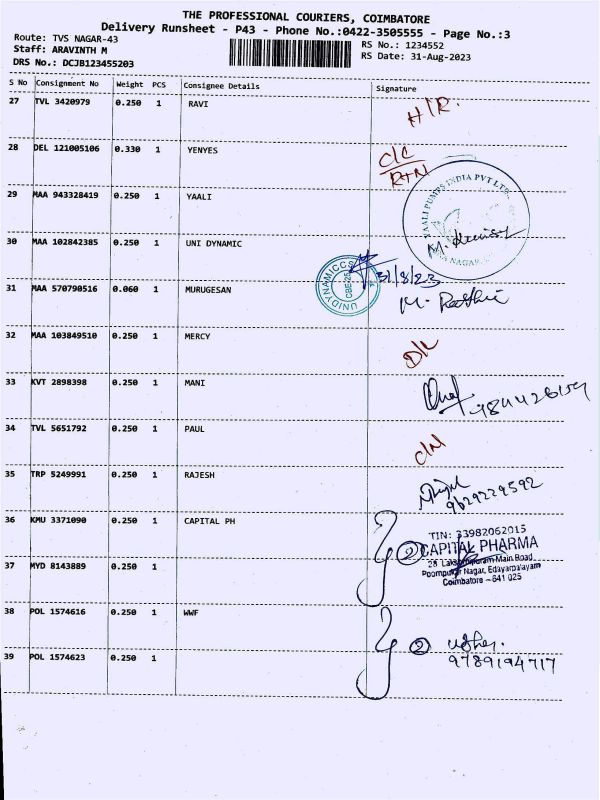 THE PROFESSIONAL COURIERS, COIMBATORE
Delivery Runsheet - P43 - Phone No.:0422-3505555 - Page No.:3
Route: TVS NAGAR-43 RS No.: 1234552
Staff: ARAVINTH M RS Date: 31-Aug-2023
DRS No.: DCJB123455203
S No Consignment No Weight PCS Consignee Details Signature
27 TVL 3420979 0.250 1 RAVI H/R.
28 DEL 121005106 0.330 1 YENYES C/C
RTN
29 MAA 943328419 0.250 1 YAALI
YAALI PUMPS INDIA PVT LTD.
NAGAR,
30 MAA 102842385 0.250 1 UNI DYNAMIC
UNIDYNAMICCS
CBE-25
31/8/23
31 MAA 570790516 0.060 1 MURUGESAN M.
32 MAA 103849510 0.250 1 MERCY D/L
33 KVT 2898398 0.250 1 MANI
34 TVL 5651792 0.250 1 PAUL C/N
35 TRP 5249991 0.250 1 RAJESH
9629229592
36 KMU 3371090 0.250 1 CAPITAL PH
TIN: 33982062015
2 CAPITAL PHARMA
28 Lakshmipuram Main Road
37 MYD 8143889 0.250 1
Poompukar Nagar, Edayarpalayam
Coimbatore - 641 025
38 POL 1574616 0.250 1 WWF
2
39 POL 1574623 0.250 1 9789194717